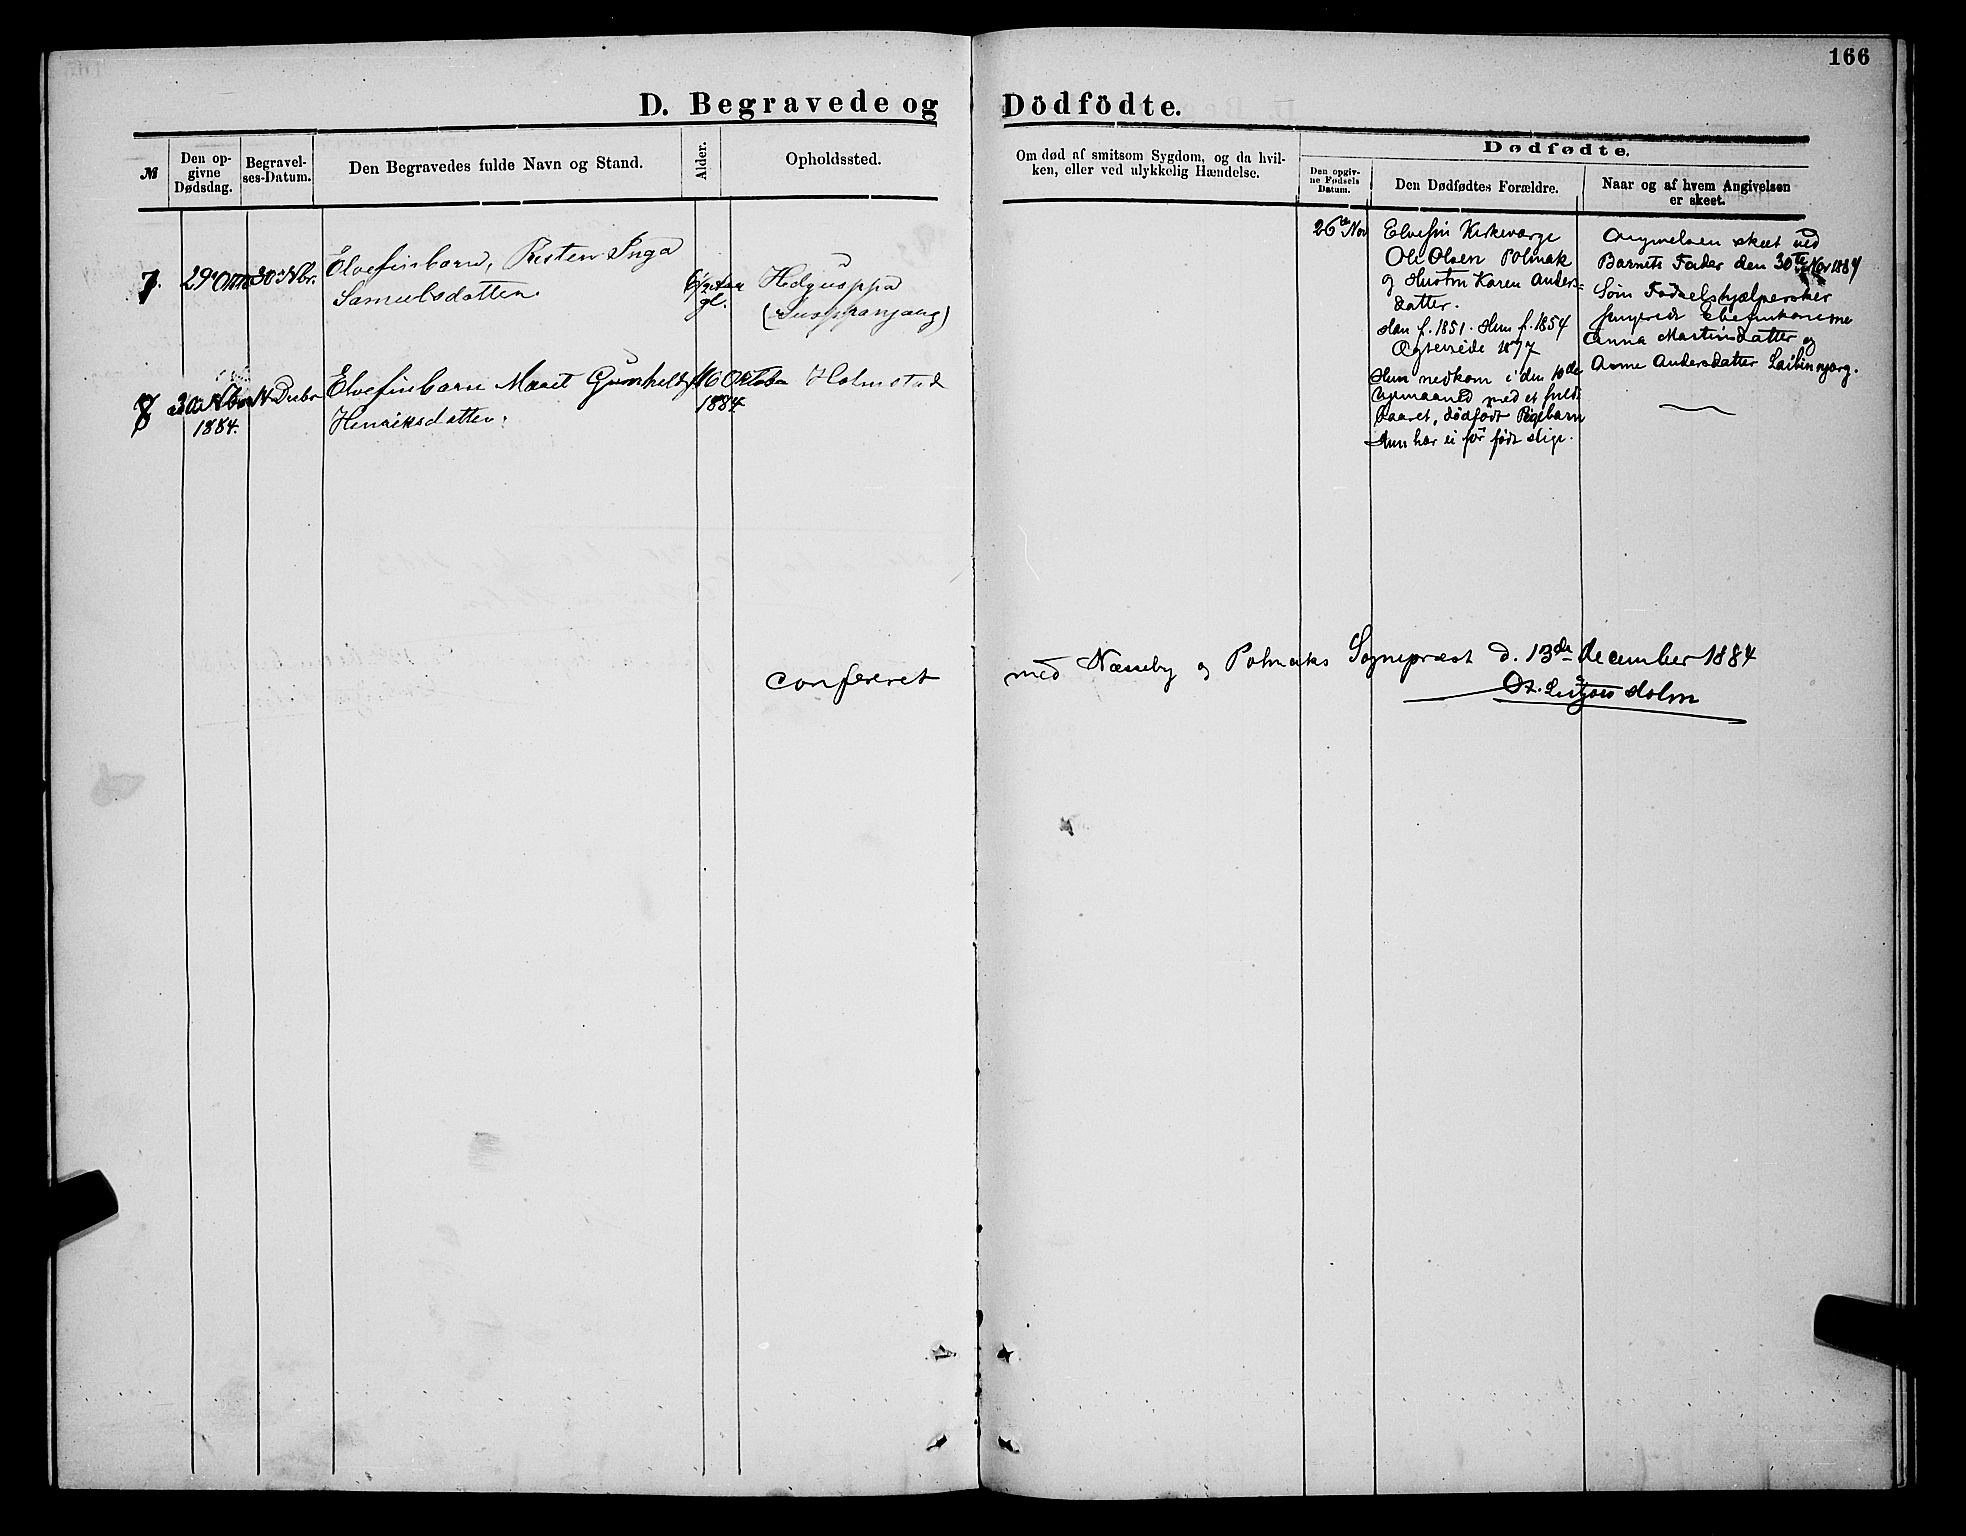 166
D. Begravede og Dödfödte.
№
Den op-
givne
Dødsdag.
Begravel-
ses-Datum.
Den Begravedes fulde Navn og Stand.
Alder.
Opholdssted.
Om død af smitsom Sygdom, og da hvil-
ken, eller ved ulykkelig Hændelse.
Dødfødte.
Den opgiv-
ne Fødsels
Datum.
Den Dødfødtes Forældre.
Naar og af hvem Angivelsen
er skeet.
7.
29de
30de Nbr.
Elvefinbarn, Risten Inga
Samuelsdatter
6½ Aar
gl.
8
30 Nbr
1884.
14 Decbr
Elvefinbarn Maret Gunhild
Henriksdatter.
f. 16 Oktober
1884
Holmstad
26de Nov
Elvefin Kirkeværge
Ole Olsen Polmak
og Hustru Karen Anders-
datter.
Han f. 1851. Hun f. 1854
Ægteviede 1877
Hun nedkom i den 10de
med et fuldt
baaret, dødfødt Pigebarn
Hun har ei før født slige.
Angivelsen skeet ved
Barnets Fader den 30te Nov 1884
Som Fødselshjælpersker
fungeredt Elvefinkonerne
Anna Martinsdatter og
Anne Andersdatter
confereret
med Næsseby og Polmaks Sognepræst d. 13de december 1884
Holm